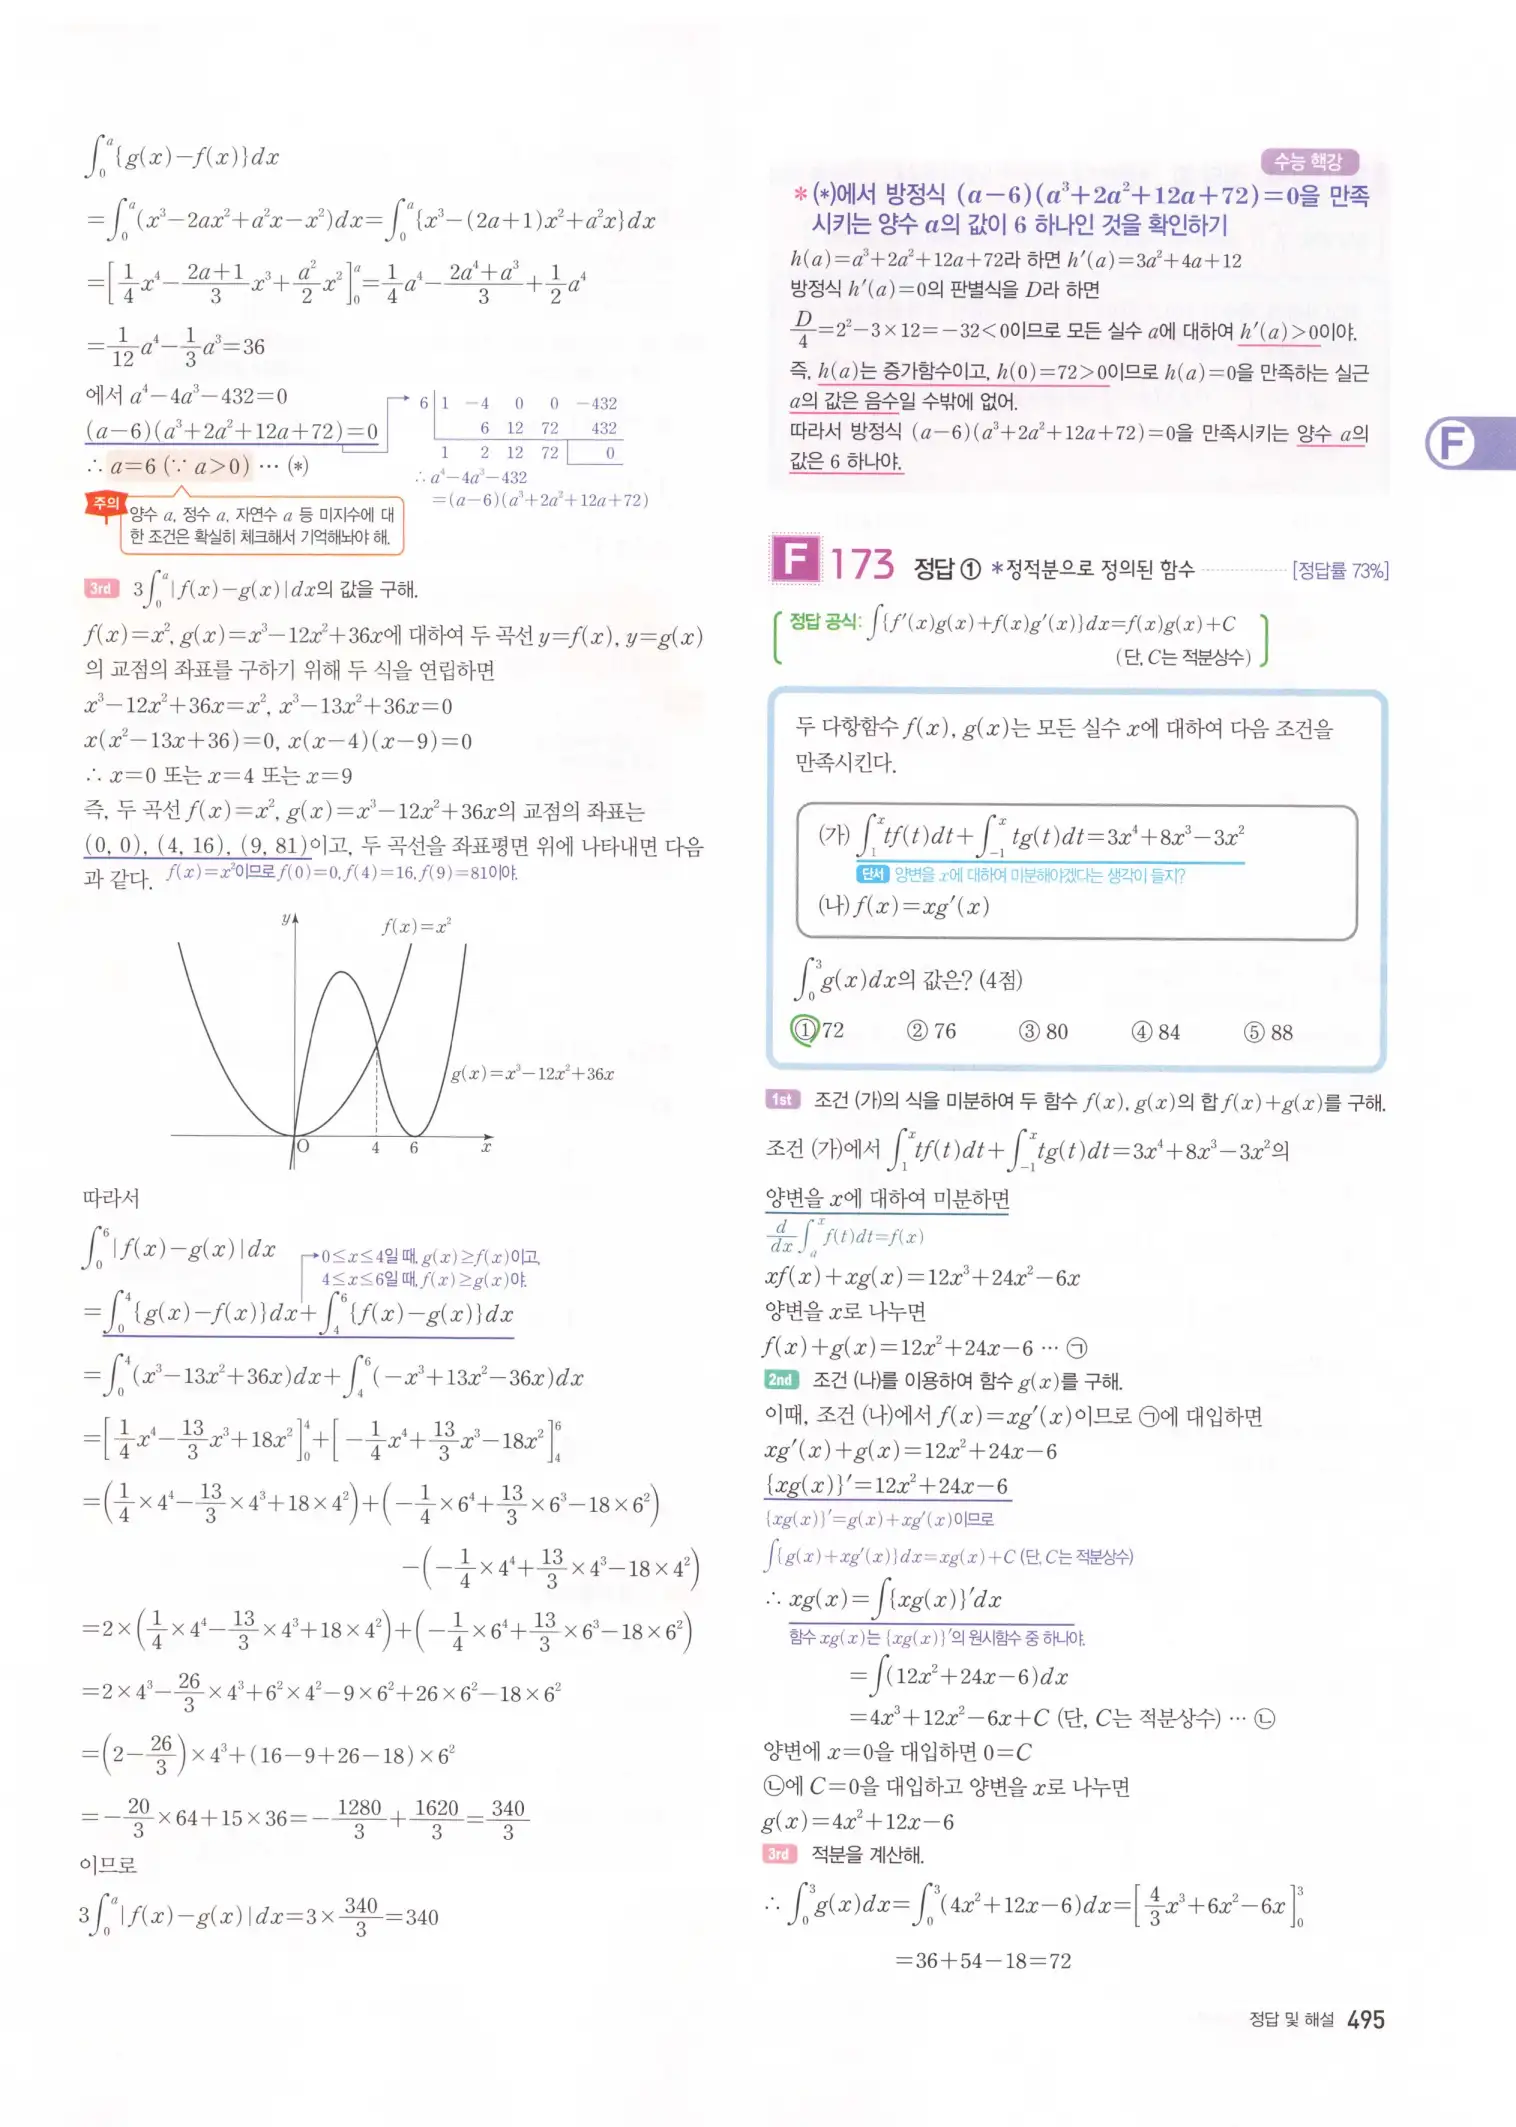 ∫₀ᵃ{g(x)−f(x)}dx
=∫₀ᵃ(x³−2ax²+a²x−x²)dx=∫₀ᵃ{x³−(2a+1)x²+a²x}dx
=[1/4 x⁴−(2a+1)/3 x³+a²/2 x²]₀ᵃ=1/4 a⁴−(2a⁴+a³)/3+1/2 a⁴
=1/12 a⁴−1/3 a³=36
에서 a⁴−4a³−432=0
(a−6)(a³+2a²+12a+72)=0
∴ a=6 (∵ a>0) ⋯ (*)
6 1 −4 0 0 −432
6 12 72 432
1 2 12 72 0
∴ a⁴−4a³−432
=(a−6)(a³+2a²+12a+72)
주의
양수 a, 정수 a, 자연수 a 등 미지수에 대
한 조건은 확실히 체크해서 기억해놔야 해.
3rd 3∫₀ᵃ|f(x)−g(x)|dx의 값을 구해.
f(x)=x², g(x)=x³−12x²+36x에 대하여 두 곡선 y=f(x), y=g(x)
의 교점의 좌표를 구하기 위해 두 식을 연립하면
x³−12x²+36x=x², x³−13x²+36x=0
x(x²−13x+36)=0, x(x−4)(x−9)=0
∴ x=0 또는 x=4 또는 x=9
즉, 두 곡선 f(x)=x², g(x)=x³−12x²+36x의 교점의 좌표는
(0, 0), (4, 16), (9, 81)이고, 두 곡선을 좌표평면 위에 나타내면 다음
과 같다. f(x)=x²이므로 f(0)=0, f(4)=16, f(9)=81이야.
y
f(x)=x²
g(x)=x³−12x²+36x
O 4 6 x
따라서
∫₀⁶|f(x)−g(x)|dx
0≤x≤4일 때, g(x)≥f(x)이고,
4≤x≤6일 때, f(x)≥g(x)야.
=∫₀⁴{g(x)−f(x)}dx+∫₄⁶{f(x)−g(x)}dx
=∫₀⁴(x³−13x²+36x)dx+∫₄⁶(−x³+13x²−36x)dx
=[1/4 x⁴−13/3 x³+18x²]₀⁴+[−1/4 x⁴+13/3 x³−18x²]₄⁶
=(1/4×4⁴−13/3×4³+18×4²)+(−1/4×6⁴+13/3×6³−18×6²)
−(−1/4×4⁴+13/3×4³−18×4²)
=2×(1/4×4⁴−13/3×4³+18×4²)+(−1/4×6⁴+13/3×6³−18×6²)
=2×4³−26/3×4³+6²×4²−9×6²+26×6²−18×6²
=(2−26/3)×4³+(16−9+26−18)×6²
=−20/3×64+15×36=−1280/3+1620/3=340/3
이므로
3∫₀ᵃ|f(x)−g(x)|dx=3×340/3=340
수능 핵강
* (*)에서 방정식 (a−6)(a³+2a²+12a+72)=0을 만족
시키는 양수 a의 값이 6 하나인 것을 확인하기
h(a)=a³+2a²+12a+72라 하면 h′(a)=3a²+4a+12
방정식 h′(a)=0의 판별식을 D라 하면
D/4=2²−3×12=−32<0이므로 모든 실수 a에 대하여 h′(a)>0이야.
즉, h(a)는 증가함수이고, h(0)=72>0이므로 h(a)=0을 만족하는 실근
a의 값은 음수일 수밖에 없어.
따라서 방정식 (a−6)(a³+2a²+12a+72)=0을 만족시키는 양수 a의
값은 6 하나야.
F
F 173 정답 ① *정적분으로 정의된 함수 [정답률 73%]
정답 공식: ∫{f′(x)g(x)+f(x)g′(x)}dx=f(x)g(x)+C
(단, C는 적분상수)
두 다항함수 f(x), g(x)는 모든 실수 x에 대하여 다음 조건을
만족시킨다.
(가) ∫₁ˣtf(t)dt+∫₋₁ˣtg(t)dt=3x⁴+8x³−3x²
단서 양변을 x에 대하여 미분해야겠다는 생각이 들지?
(나) f(x)=xg′(x)
∫₀³g(x)dx의 값은? (4점)
① 72 ② 76 ③ 80 ④ 84 ⑤ 88
1st 조건 (가)의 식을 미분하여 두 함수 f(x), g(x)의 합 f(x)+g(x)를 구해.
조건 (가)에서 ∫₁ˣtf(t)dt+∫₋₁ˣtg(t)dt=3x⁴+8x³−3x²의
양변을 x에 대하여 미분하면
d/dx∫ₐˣf(t)dt=f(x)
xf(x)+xg(x)=12x³+24x²−6x
양변을 x로 나누면
f(x)+g(x)=12x²+24x−6 ⋯ ㉠
2nd 조건 (나)를 이용하여 함수 g(x)를 구해.
이때, 조건 (나)에서 f(x)=xg′(x)이므로 ㉠에 대입하면
xg′(x)+g(x)=12x²+24x−6
{xg(x)}′=12x²+24x−6
{xg(x)}′=g(x)+xg′(x)이므로
∫{g(x)+xg′(x)}dx=xg(x)+C (단, C는 적분상수)
∴ xg(x)=∫{xg(x)}′dx
함수 xg(x)는 {xg(x)}′의 원시함수 중 하나야.
=∫(12x²+24x−6)dx
=4x³+12x²−6x+C (단, C는 적분상수) ⋯ ㉡
양변에 x=0을 대입하면 0=C
㉡에 C=0을 대입하고 양변을 x로 나누면
g(x)=4x²+12x−6
3rd 적분을 계산해.
∴ ∫₀³g(x)dx=∫₀³(4x²+12x−6)dx=[4/3 x³+6x²−6x]₀³
=36+54−18=72
정답 및 해설 495